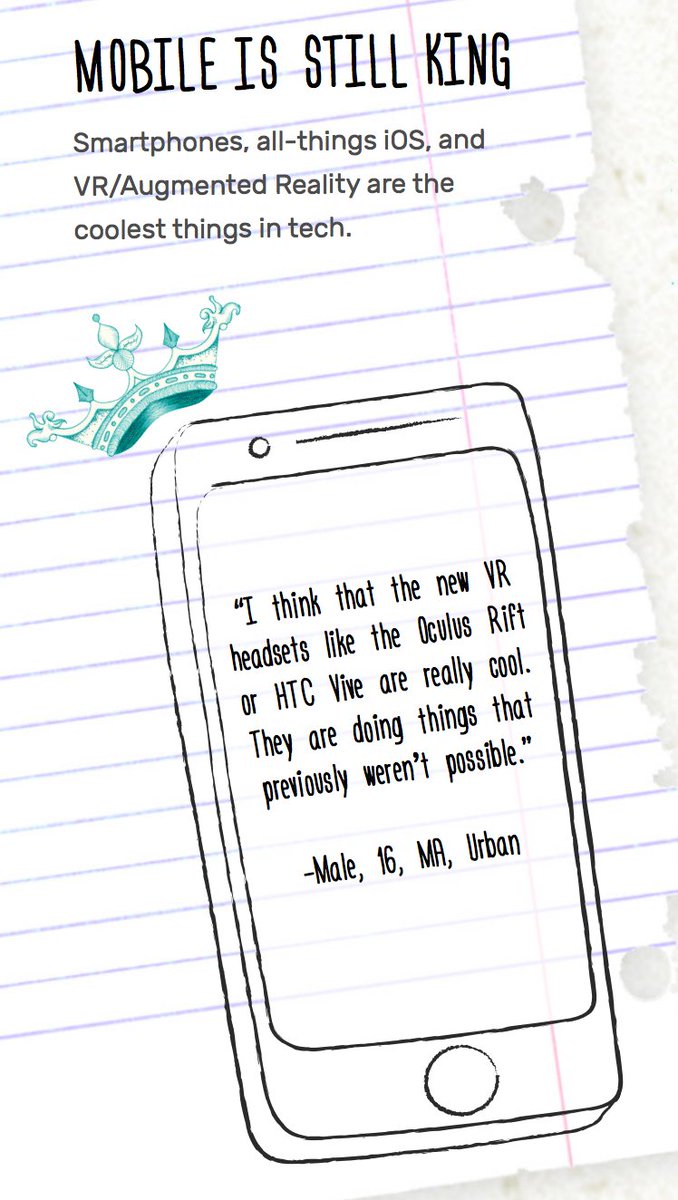 MOBILE IS STILL KING
Smartphones, all-things iOS, and
VR/Augmented Reality are the
coolest things in tech.
“I think that the new VR
headsets like the Oculus Rift
or HTC Vive are really cool.
They are doing things that
previously weren’t possible.”
-Male, 16, MA, Urban